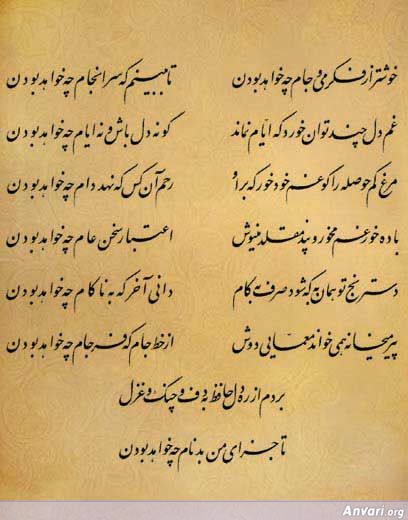 خوشتر از فکر می و جام چه خواهد بودن
تا ببینم که سرانجام چه خواهد بودن
غم دل چند توان خورد که ایام نماند
گو نه دل باش و نه ایام چه خواهد بودن
مرغ کم حوصله را گو غم خود خور که بر او
رحم آن کس که نهد دام چه خواهد بودن
باده خور غم مخور و پند مقلد منیوش
اعتبار سخن عام چه خواهد بودن
دسترنج تو همان به که شود صرف به کام
دانی آخر که به ناکام چه خواهد بودن
پیر میخانه همی خواند معمایی دوش
از خط جام که فرجام چه خواهد بودن
بردم از ره دل حافظ به دف و چنگ و غزل
تا جزای من بدنام چه خواهد بودن
Anvari.org